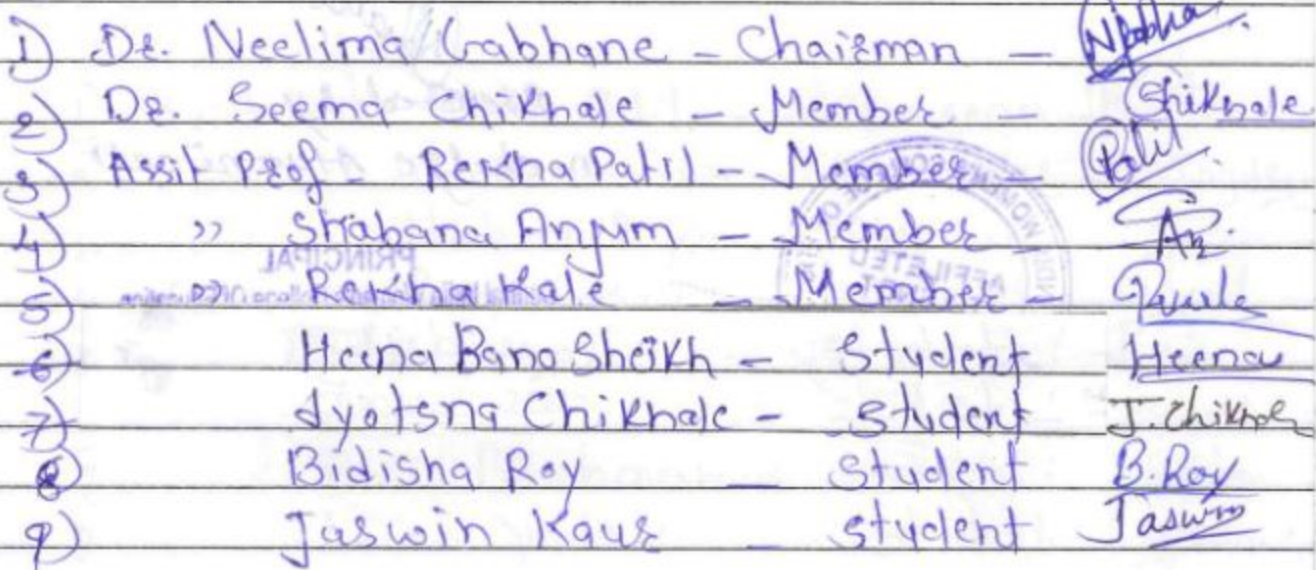 1) Dr. Neelima Gabhane - Chairman -
2) Dr. Seema Chikhale - Member - Chikhale
3) Assit Prof - Rekha Patil - Member - Patil
4) " Shabana Anjum - Member -
5) " Rekha Kale - Member -
6) Heena Bano Sheikh - Student - Heena
7) Jyotsna Chikhale - Student J. Chikhale
8) Bidisha Roy - Student B. Roy
9) Jaswin Kaur - Student Jaswin
PRINCIPAL
AFFILETED